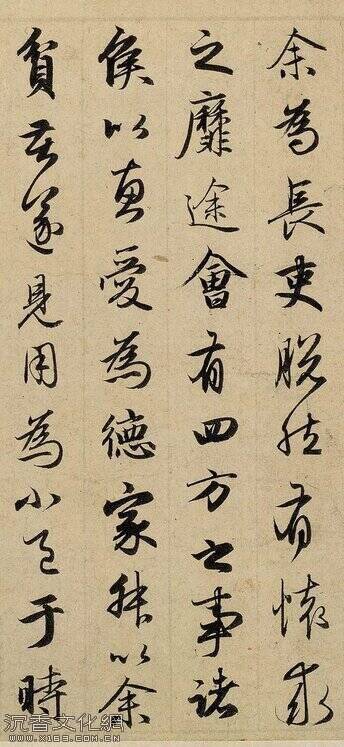 余為長吏脫然有懷求
之靡途會有四方之事諸
侯以惠愛為德家叔以余
貧苦遂見用為小邑于時
沉香文化網
www.x163.com.cn